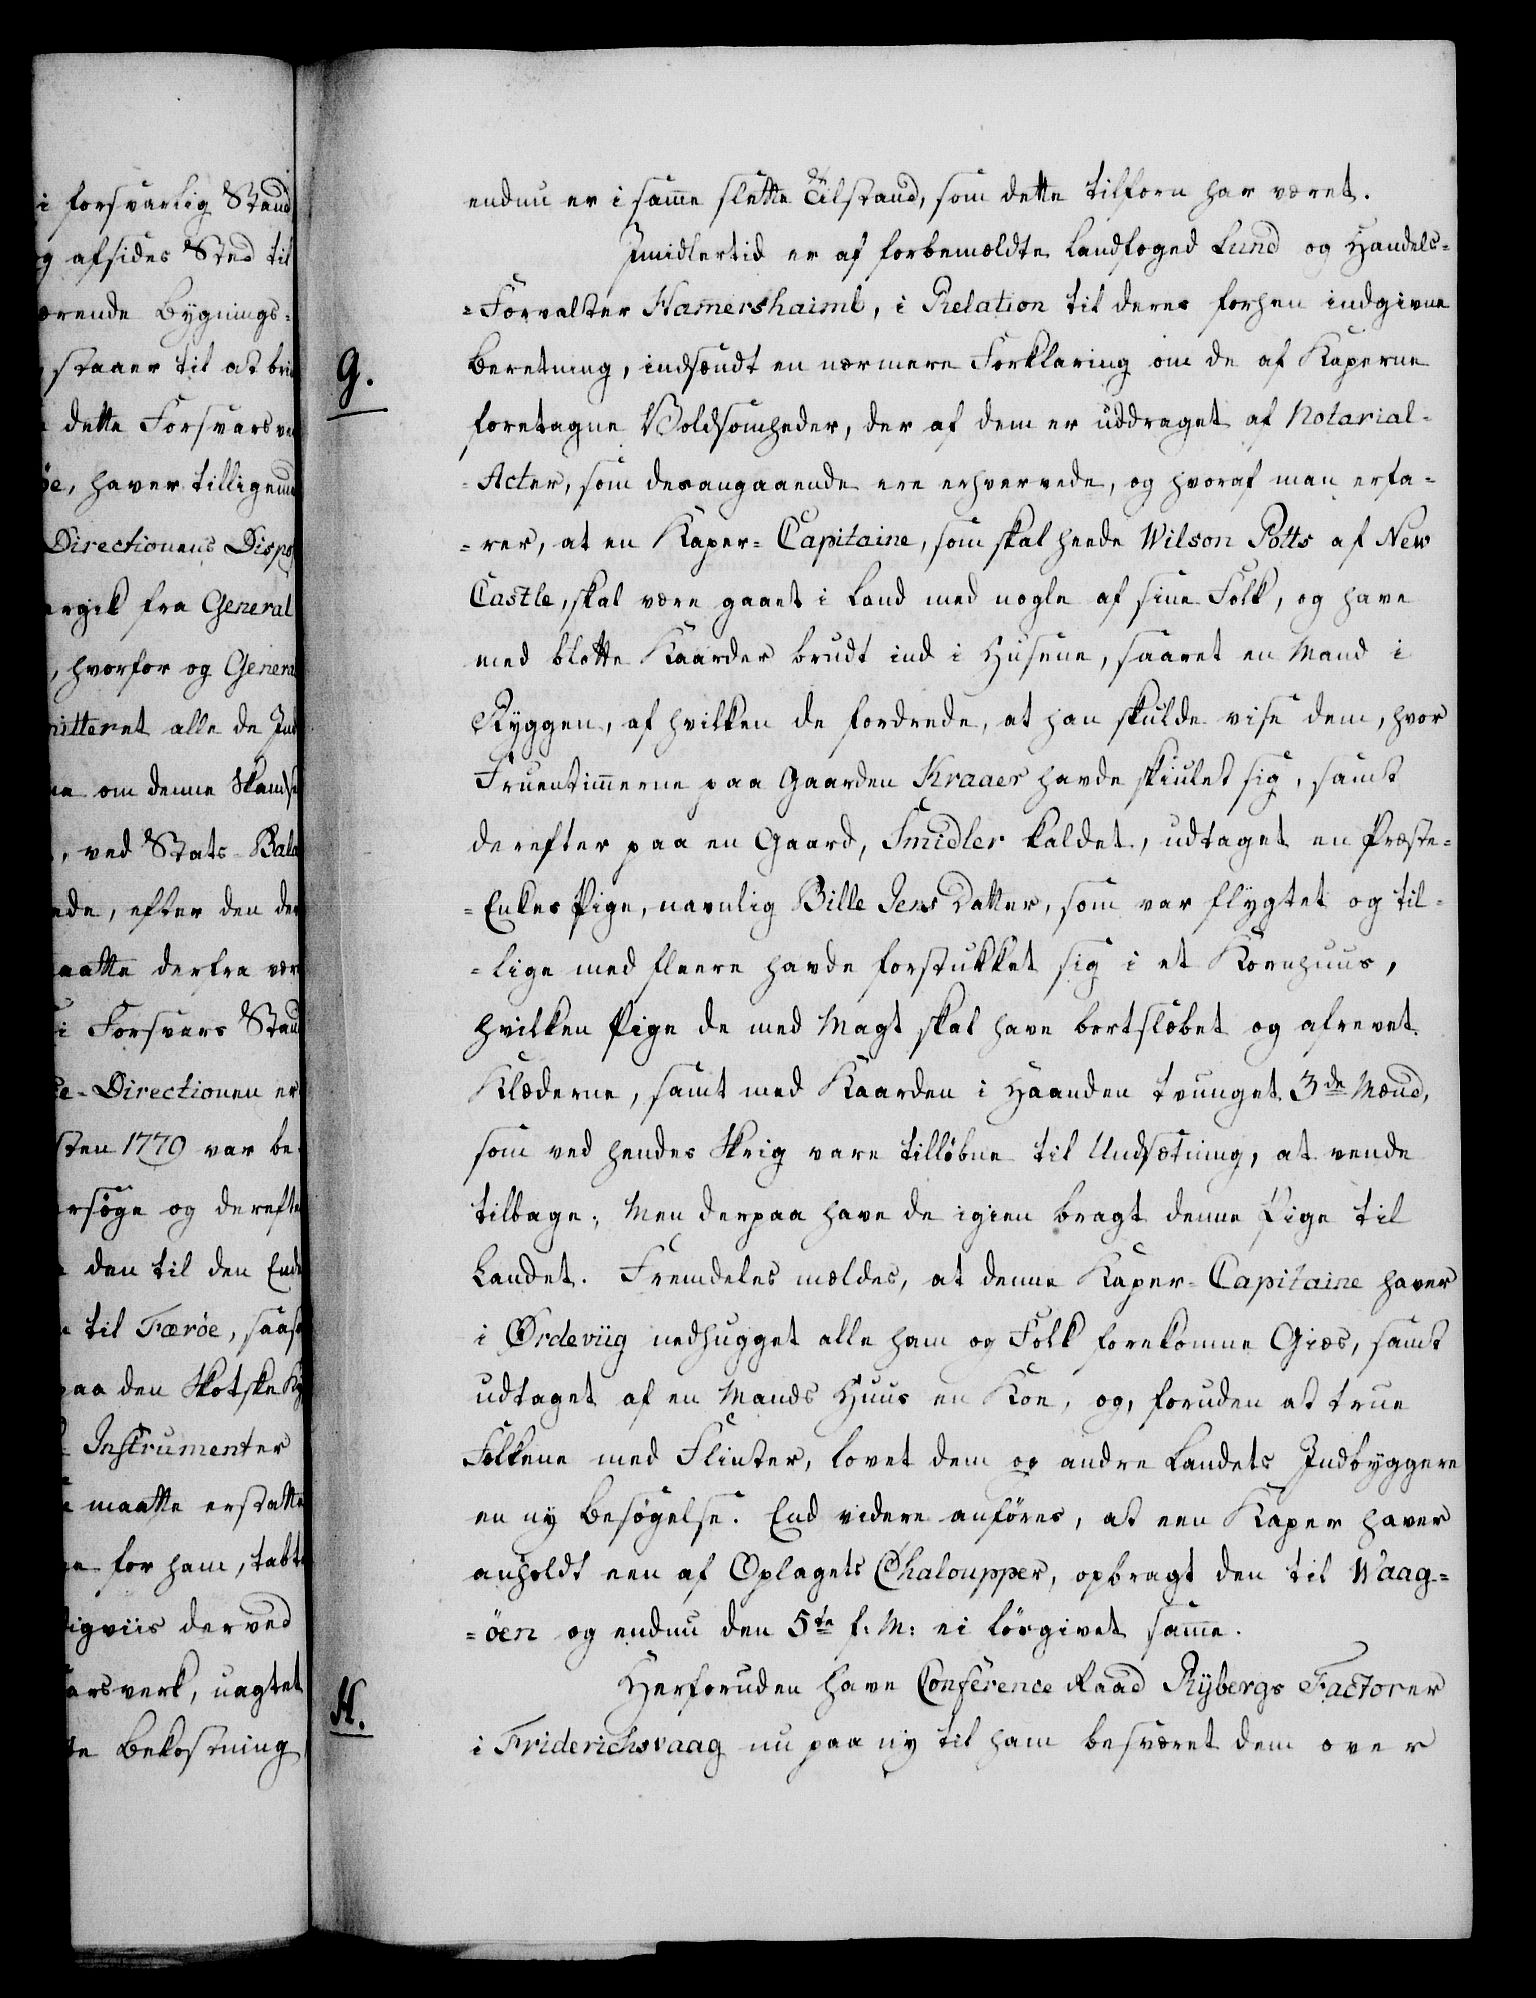 i forsvarlig Stand
og afsides Sted til
ærende Bygnings=
staaer til at brin
dette Forsvarsve
öe, haver tilligeme
Directionens Dispo
ergik fra General
, hvorfor og Genera
mitteret alle de Ind
ne om denne Skands
, ved Stats-Bala
ede, efter den der
aatte derfra vær
i Forsvars Stan
ce-Directionen er
sten 1779 var be=
ersöge og derefte
den til den Ende
til Færöe, saas
paa den Skotske Ky
Instrumenter
maatte erstatte
ne for ham, tabt
ligviis derved
arsverk, uagtet
te Bekostning
endnu er i samme slette Tilstand, som dette tilforn har været.
Imidlertid er af forbemældte Landfoged Lund og Handels=
=Forvalter Hamershaimb, i Relation til deres forhen indgivne
G.
Beretning, indsendt en nærmere Forklaring om de af Kaperne
foretagne Voldsomheder, der af dem er uddraget af Notarial=
=Acter, som desangaaende ere erhvervede, og hvoraf man erfa=
=rer, at en Kaper=Capitaine, som skal heede Wilson Potts af New
Castle, skal være gaaet i Land med nogle af sine Folk, og have
med blotte Kaarder brudt ind i Husene, saaret en Mand i
Ryggen, af hvilken de fordrede, at han skulde vise dem, hvor
Fruentimerne paa Gaarden Kraaer havde skiulet sig, samt
derefter paa en Gaard, Smidler kaldet, udtaget en Præste=
=Enkes Pige, navnlig Bille Jens Datter, som var flygtet og til=
=lige med fleere havde forstukket sig i et Kornhuus,
hvilken Pige de med Magt skal have bortslæbet og afrevet
Klæderne, samt med Kaarden i Haanden tvunget 3de Mænd,
som ved hendes Skrig vare tillöbne til Undsætning, at vende
tilbage; Men derpaa have de igien bragt denne Pige til
Landet. Fremdeles meldes, at denne Kaper-Capitaine haver
i Ordeviig nedhugget alle ham og Folk forekomne Giæs, samt
udtaget af en Mands Huus en Koe, og, foruden at true
Folkene med Flinter, lovet dem og andre Landets Indbyggere
en ny Besögelse. End videre anföres, at een Kaper haver
anholdt een af Oplagets Chaloupper, opbragt den til Waag=
=öen og endnu den 5te f: M: ei lösgivet samme.
Herforuden have Conference Raad Rybergs Factorer
H.
i Friderichsvaag nu paa ny til ham besværet dem over